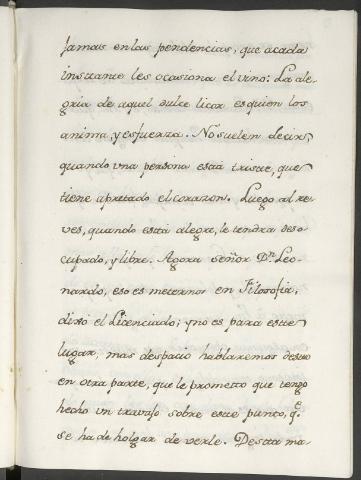 jamas en las pendencias, que acada
instante les ocasiona el vino: La ale-
gria de aquel dulce licor es quien los
anima, y esfuerza. No suelen decir,
quando una persona está triste, que
tiene apretado el corazon. Luego al re-
ves, quando está alegre, le tendra deso-
cupado, y libre. Agora señor Dn. Leo-
nardo, eso es meternos en Filosofia,
dixo el Licenciado; y no es para este
lugar, mas despacio hablaremos desto
en otra parte, que le prometto que tengo
hecho un travajo sobre este punto, qe.
se ha de holgar de verle. Desta ma-